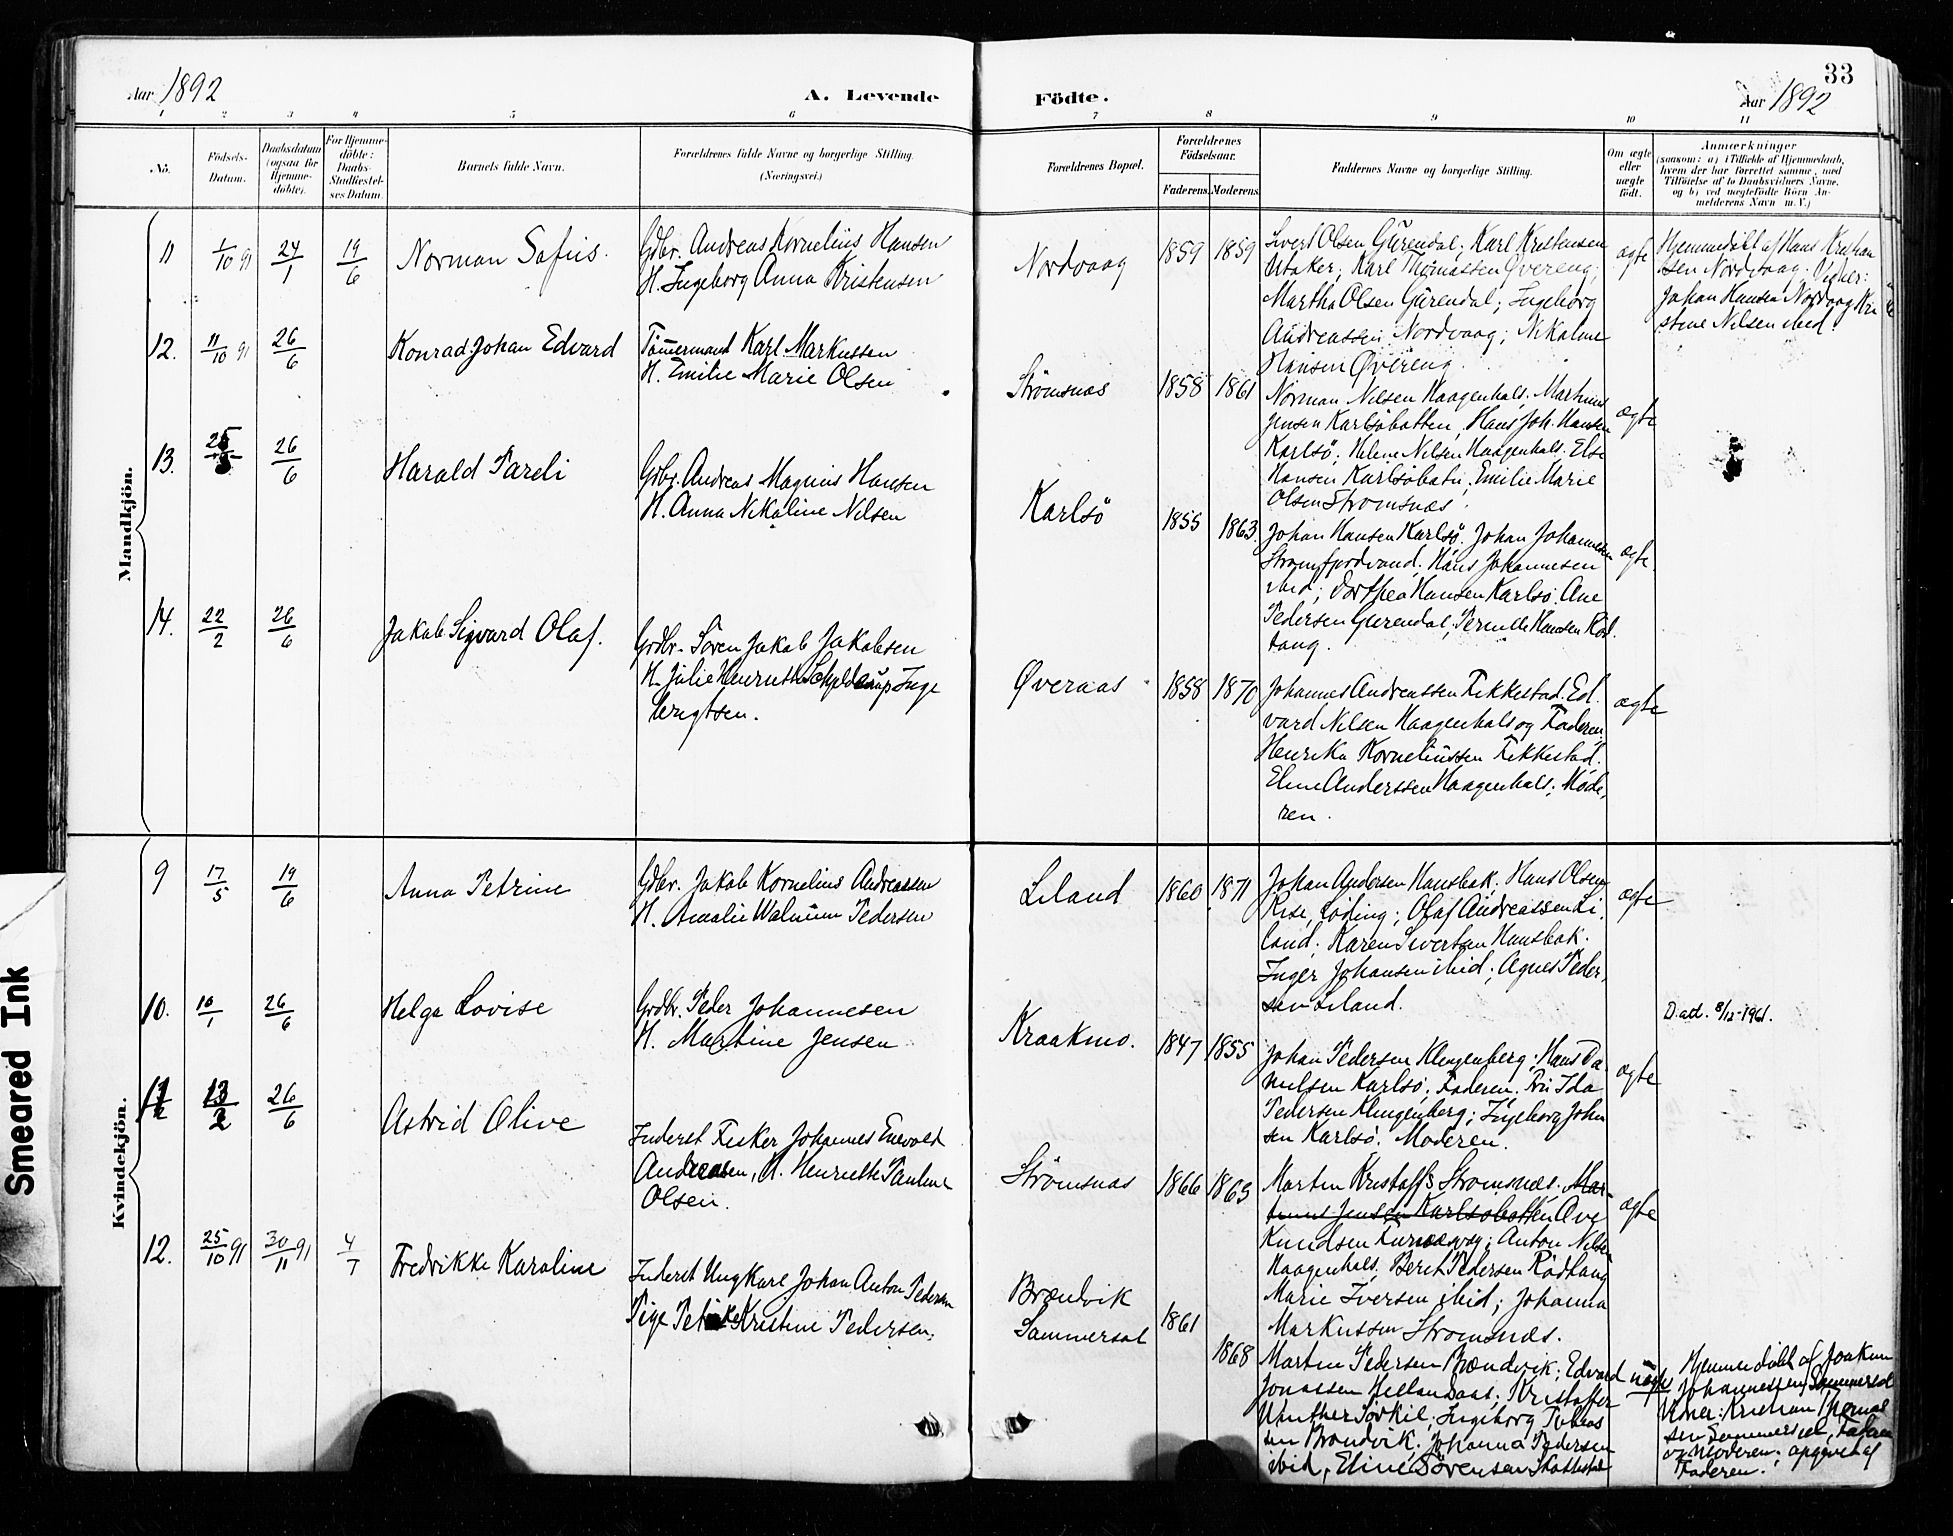 33
Aar 1892 A. Levende Födte. Aar 1892
1 2 3 4 5 6 7 8 9 10 11
No.
Födsels-
Datum.
Daabsdatum
(ogsaa for
Hjemme-
döbte).
For Hjemme-
döbte:
Daabs-
Stadfæstel-
ses Datum.
Barnets fulde Navn.
Forældrenes fulde Navne og borgerlige Stilling.
(Næringsvei.)
Forældrenes Bopæl.
Forældrenes
Födselsaar.
Faderens. Moderens.
Faddernes Navne og borgerlige Stilling.
Om ægte
eller
uægte
födt.
Anmærkninger
(saasom: a) i Tilfælde af Hjemmedaab,
hvem der har forrettet samme, med
Tilföielse af to Daabsvidners Navne,
og b) ved uægtefödte Börn An-
melderens Navn m. V.)
Mandkjön.
11 1/10 91 24/1 19/6 Norman Sofus.
Gdbr. Andreas Kornelius Hansen
H. Ingeborg Anna Kristensen
Nordvaag 1859 1859
Sivert Olsen Gürendal; Karl Kristensen
Utaker; Karl Thomassen Øvereng;
Martha Olsen Gürendal; Ingeborg
Andreassen Nordvaag; Nikoline
Hansen Øvereng.
ægte
Hjemmedöbt af Hans Kristian
sen Nordvaag. Vidner:
Johan Hansen Nordvaag Kri
stine Nilsen ibid.
12. 11/10 91 26/6 Konrad Johan Edvard
Tömmermand Karl Markussen
H. Emilie Marie Olsen
Strömsnæs 1858 1861
Norman Nilsen Haagenhals, Martinus
Jensen Karlsöbotten, Hans Joh. Hansen
Karlsö; Helene Nilsen Haagenhals. Else
Hansen Karlsöbotn; Emilie Marie
Olsen Strömsnæs.
ægte
13. 26/6 Harald Pareli
Gdbr. Andreas Magnus Hansen
H. Anna Nikoline Nilsen
Karlsö 1855 1863.
Johan Hansen Karlsö. Johan Johannesen
Strømfjordvand; Hans Johannesen
ibid; Dorthea Hansen Karlsö. Ane
Pedersen Gürendal; Pernille Hansen Röd
tang.
ægte.
14. 22/2 26/6 Jakob Sigvard Olaf.
Grdbr. Sören Jakob Jakobsen
H. Julie Henriette Schjelderup Inge
brigtsen.
Øveraas 1858 1870
Johannes Andreassen Fikkestad. Ed.
vard Nilsen Haagenhals og Faderen,
Henrika Korneliussen Fikkestad.
Eline Anderssen Haagenhals; Mode,
ren.
ægte
Kvindekjön.
9 17/5 19/6 Anna Petrine
Gdbr. Jakob Kornelius Andreassen
H. Amalie Walnum Pedersen
Liland 1860 1871
Johan Andersen Hansbak; Hans Olsen
Rise, Löding; Olaf Andreassen Li,
land. Karen Sivertsen Hansbak.
Inger Johansen ibid; Agnes Peder,
sen Liland.
ægte
10. 10/1 26/6 Helga Lovise
Grdbr. Peder Johannesen
H. Martine Jensen
Kraakmo. 1847 1855
Johan Pedersen Klingenberg; Hans Da
nielsen Karlsö, Faderen. Fru Ida
Pedersen Klingenberg; Ingeborg Johan
sen Karlsö. Moderen.
ægte
Död. 8/12-1961.
11 13/2 26/6 Astrid Olive
Inderst Fisker Johannes Enevold
Andreasen, H. Henriette Pauline
Olsen.
Strömsnæs 1866 1863
Martin Kristoffs Strömsnæs. Mar-
tinus Jensen Karlsöbotten Ove
Knudsen; Anton Nilsen
Haagenhals, Berit Pedersen Rödtang
Marie Iversen ibid; Johanna
Markussen Strömsnæs.
ægte
12. 25/10 91 30/11 91 Fredrikke Karoline
Inderst Ungkarl Johan Anton Pedersen
Pige Kristine Pedersen.
Brændvik
Sommersel
1861
1868
Martin Pedersen Brændvik; Edvard
Jonassen Hellandsaas; Kristoffer
Winther Sörkil; Ingeborg Tobias
sen Brændvik. Johanna Pedersen
ibid, Eline Sörensen Skottestad
uægte
Hjemmedöbt af Joakim
Johannessen Sommersel
Vidner: Kristian Thomas
sen Sommersel, Faderen
og Moderen; opgivet af
Faderen.
Smeared Ink